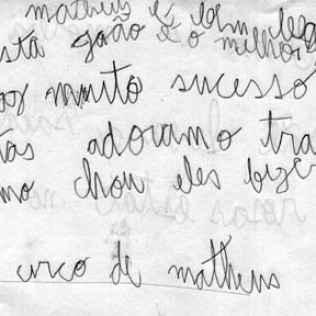 matheus e
sta joão é o melhor
as muito sucesso
tas adoramo tra
mo chou eles
circo de matheus